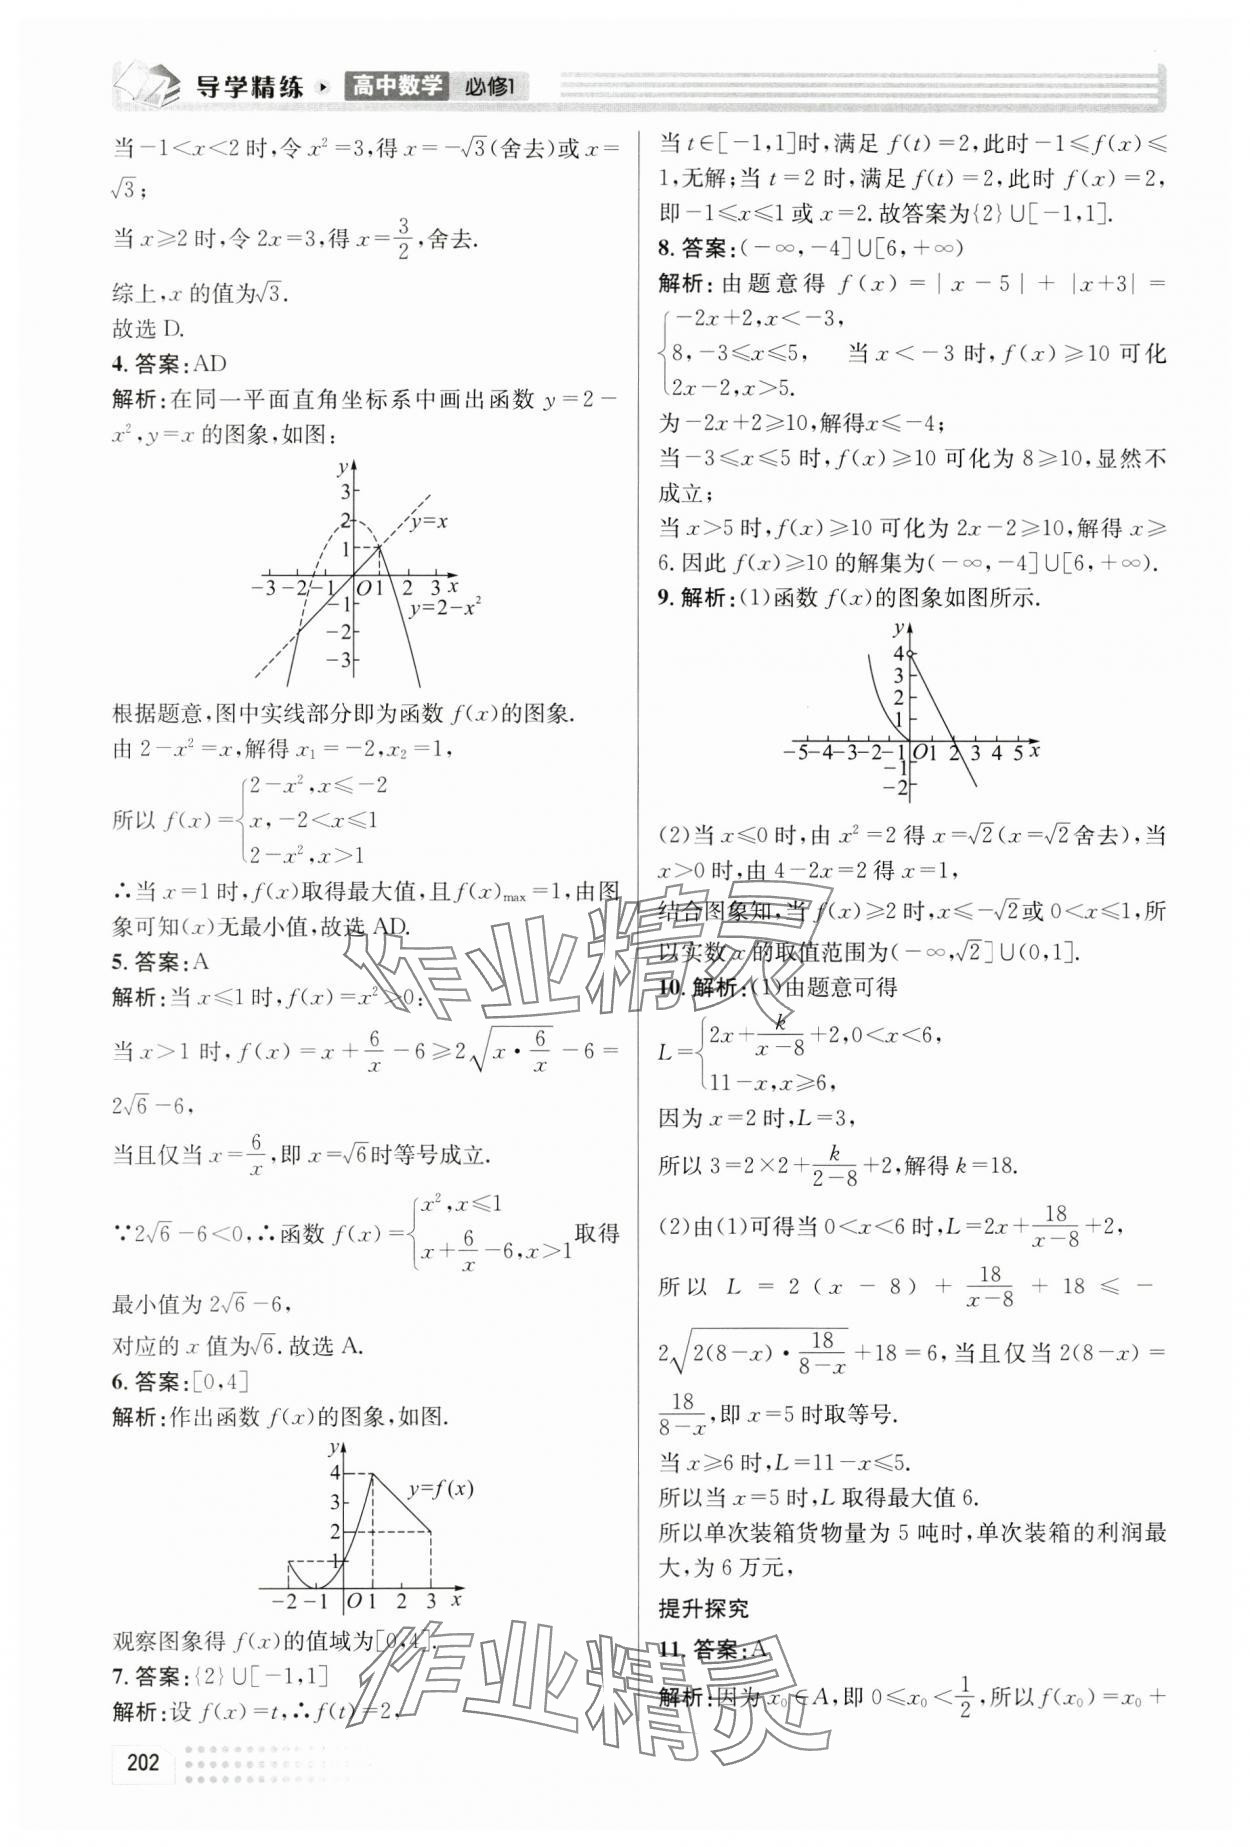 导学精练 高中数学 必修1
当-1<x<2时,令x²=3,得x=-√3(舍去)或x=
√3;
当x≥2时,令2x=3,得x=3/2,舍去.
综上,x的值为√3.
故选D.
4.答案:AD
解析:在同一平面直角坐标系中画出函数y=2-
x²,y=x的图象,如图:
y
3
2
1
-3 -2 -1 O 1 2 3 x
-1
-2
-3
y=x
y=2-x²
根据题意,图中实线部分即为函数f(x)的图象.
由2-x²=x,解得x₁=-2,x₂=1,
所以f(x)={2-x²,x≤-2
x,-2<x≤1
2-x²,x>1
∴当x=1时,f(x)取得最大值,且f(x)max=1,由图
象可知(x)无最小值,故选AD.
5.答案:A
解析:当x≤1时,f(x)=x²≥0;
当x>1时,f(x)=x+6/x-6≥2√(x·6/x)-6=
2√6-6,
当且仅当x=6/x,即x=√6时等号成立.
∵2√6-6<0,∴函数f(x)={x²,x≤1
x+6/x-6,x>1 取得
最小值为2√6-6,
对应的x值为√6.故选A.
6.答案:[0,4]
解析:作出函数f(x)的图象,如图.
y
4
3
2
1
-2 -1 O 1 2 3 x
y=f(x)
观察图象得f(x)的值域为[0,4].
7.答案:{2}∪[-1,1]
解析:设f(x)=t,∴f(t)=2,
202
当t∈[-1,1]时,满足f(t)=2,此时-1≤f(x)≤
1,无解;当t=2时,满足f(t)=2,此时f(x)=2,
即-1≤x≤1或x=2.故答案为{2}∪[-1,1].
8.答案:(-∞,-4]∪[6,+∞)
解析:由题意得f(x)=|x-5|+|x+3|=
{-2x+2,x<-3,
8,-3≤x≤5, 当x<-3时,f(x)≥10可化
2x-2,x>5.
为-2x+2≥10,解得x≤-4;
当-3≤x≤5时,f(x)≥10可化为8≥10,显然不
成立;
当x>5时,f(x)≥10可化为2x-2≥10,解得x≥
6.因此f(x)≥10的解集为(-∞,-4]∪[6,+∞).
9.解析:(1)函数f(x)的图象如图所示.
y
4
3
2
1
-5-4-3-2-1 O 1 2 3 4 5 x
-1
-2
(2)当x≤0时,由x²=2得x=√2(x=√2舍去),当
x>0时,由4-2x=2得x=1,
结合图象知,当f(x)≥2时,x≤-√2或0<x≤1,所
以实数x的取值范围为(-∞,√2]∪(0,1].
10.解析:(1)由题意可得
L={2x+k/(x-8)+2,0<x<6,
11-x,x≥6,
因为x=2时,L=3,
所以3=2×2+k/(2-8)+2,解得k=18.
(2)由(1)可得当0<x<6时,L=2x+18/(x-8)+2,
所以L=2(x-8)+18/(x-8)+18≤-
2√(2(8-x)·18/(8-x))+18=6,当且仅当2(8-x)=
18/(8-x),即x=5时取等号.
当x≥6时,L=11-x≤5.
所以当x=5时,L取得最大值6.
所以单次装箱货物量为5吨时,单次装箱的利润最
大,为6万元,
提升探究
11.答案:A
解析:因为x₀∈A,即0≤x₀<1/2,所以f(x₀)=x₀+
作业精灵
作业精灵